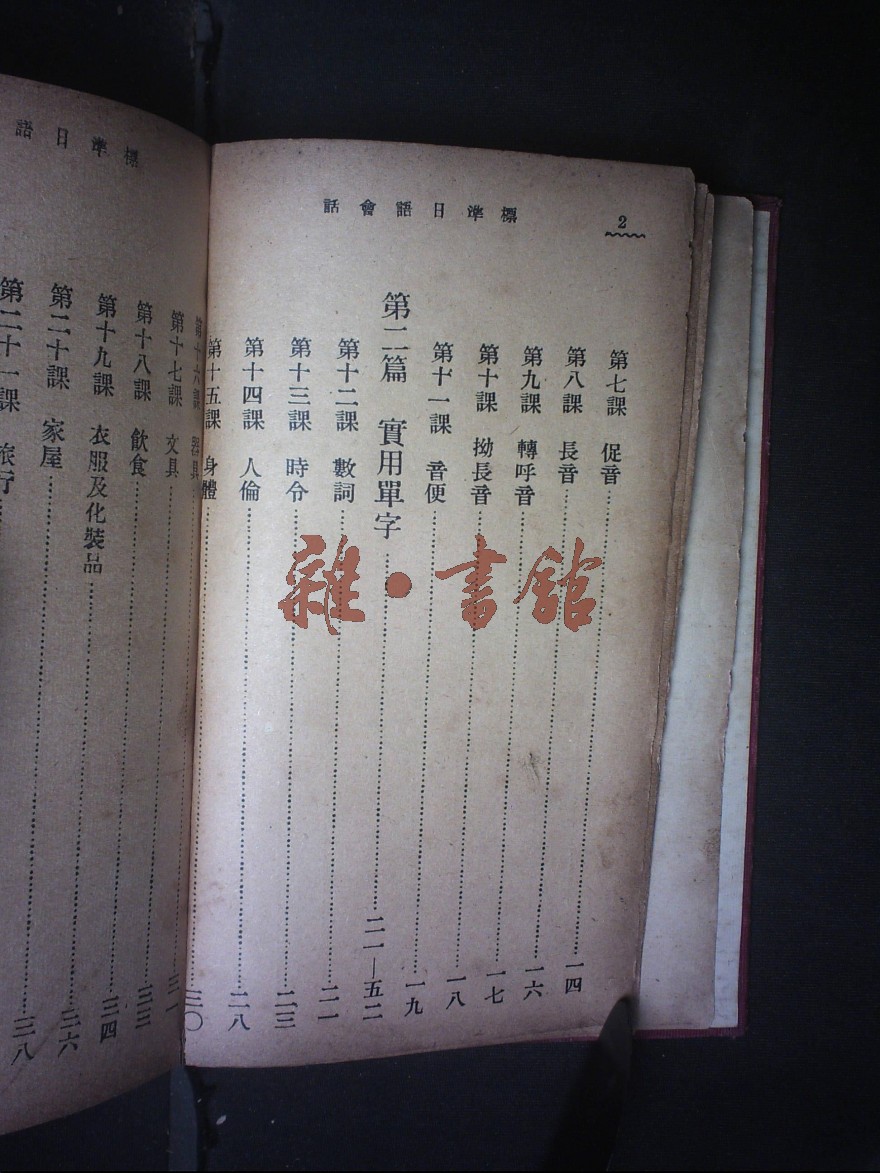 2
標準日語會話
第七課 促音 一四
第八課 長音 一六
第九課 轉呼音 一七
第十課 拗長音 一八
第十一課 音便 一九
第二篇 實用單字 二一—五二
第十二課 數詞 二一
第十三課 時令 二三
第十四課 人倫 二八
第十五課 身體 三〇
標準日語
第十六課 器具
第十七課 文具 三一
第十八課 飲食 三三
第十九課 衣服及化裝品 三四
第二十課 家屋 三六
第二十一課 旅行 三八
雜·書館